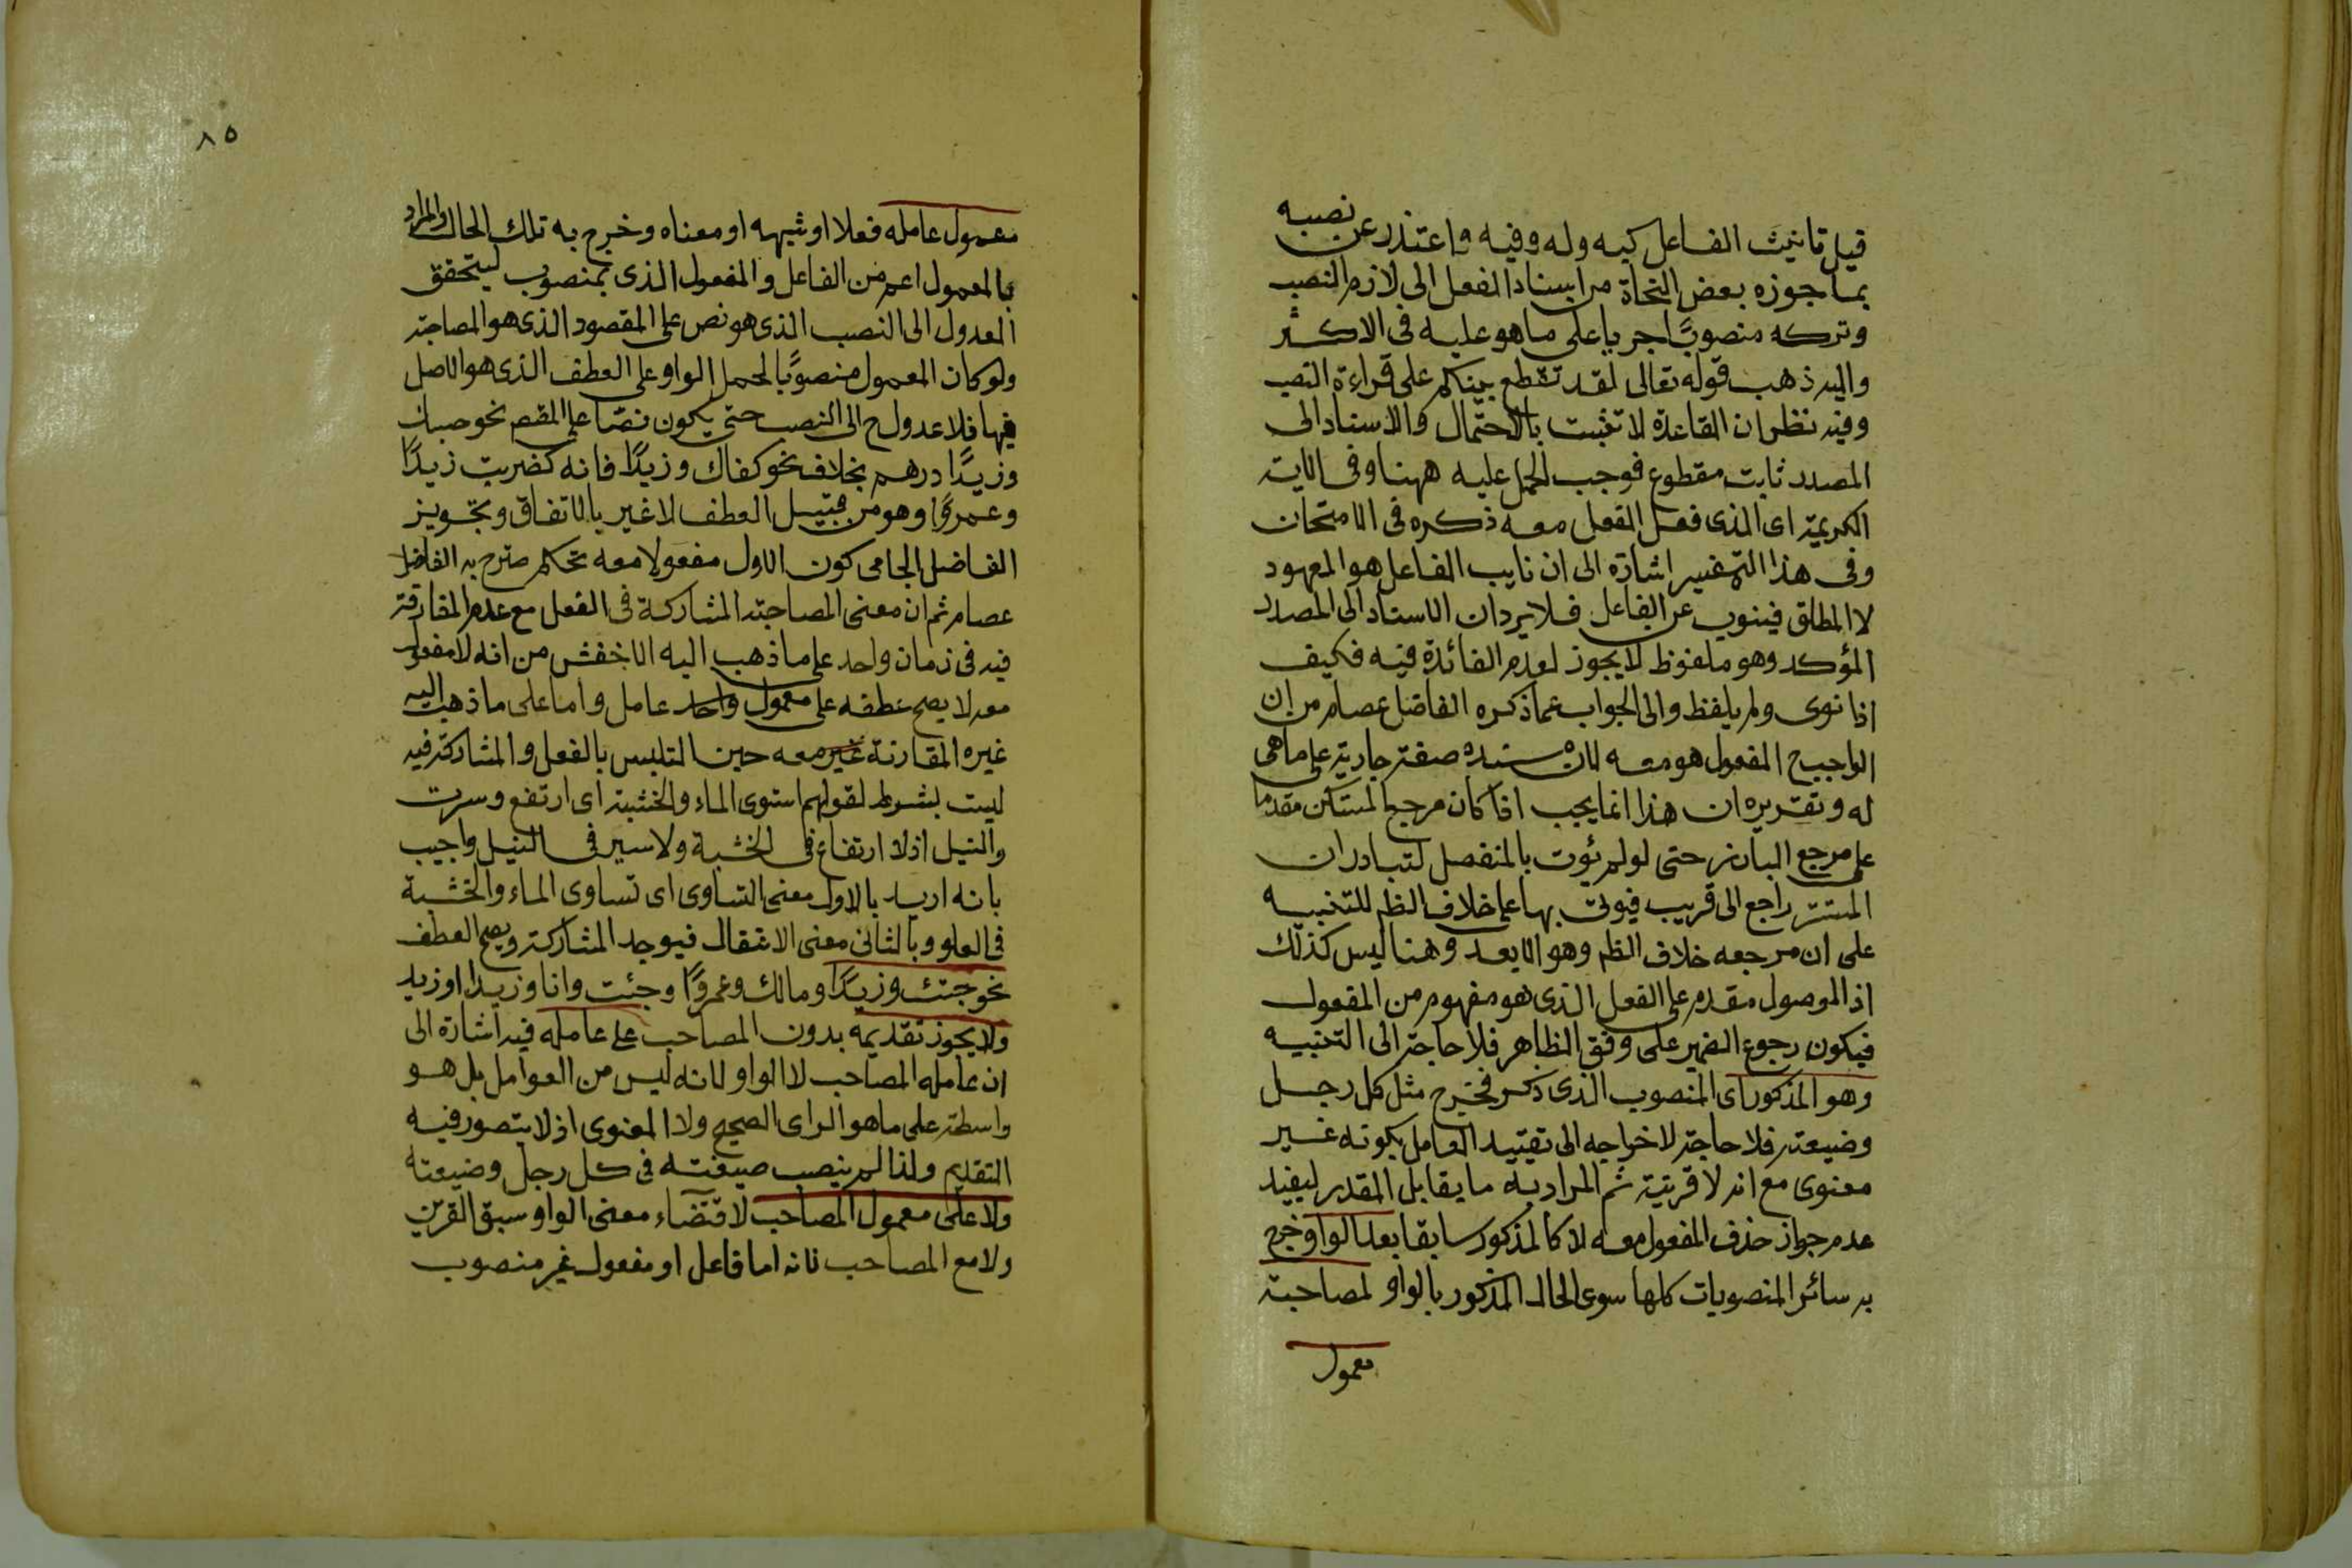 قيل تانيث الفاعل كيه وله وفيه واعتذر عن نصبه
بما جوزه بعض النحاة من اسناد الفعل الى لازم النصب
وتركه منصوبًا جريا على ما هو عليه فى الاكثر
واليه ذهب قوله تعالى لقد تقطع بينكم على قراءة النصب
وفيه نظر ان القاعدة لا تثبت بالاحتمال والاسناد الى
المصدر ثابت مقطوع فوجب الحمل عليه ههنا وفى الاية
الكريمة اى الذى فعل الفعل معه ذكره فى الامتحان
وفى هذا التفسير اشارة الى ان نايب الفاعل هو المعهود
لا المطلق فينوب عن الفاعل فلا يرد ان الاسناد الى المصدر
المؤكد وهو ملفوظ لا يجوز لعدم الفائدة فيه فكيف
اذا نوى ولم يلفظ والى الجواب عما ذكره الفاضل عصام من ان
الواجب ح المفعول هو معه لان سنده صفة جارية على ما هى
له وتقريره ان هذا انما يجب اذا كان مرجع المستكن مقدما
على مرجع البارز حتى لو لم يؤت بالمنفصل لتبادر ان
المستتر راجع الى قريب فيوتى بها على خلاف الظ للتنبيه
على ان مرجعه خلاف الظ وهو الابعد وهنا ليس كذلك
اذ الموصول مقدم على الفعل الذى هو مفهوم من المفعول
فيكون رجوع الضمير على وفق الظاهر فلا حاجة الى التنبيه
وهو المذكور اى المنصوب الذى ذكر فخرج مثل كل رجل
وضيعته فلا حاجة لاخراجه الى تقييد العامل بكونه غير
معنوى مع انه لا قرينة ثم المراد به ما يقابل المقدر ليفيد
عدم جواز حذف المفعول معه لا كالمذكور سابقا بعد الواو خرج
به سائر المنصوبات كلها سوى الحال المذكور بالواو لمصاحبة
معمول
٨٥
معمول عامله فعلا او شبهه او معناه وخرج به تلك الحال والمراد
بالمعمول اعم من الفاعل والمفعول الذى بمنصوب ليتحقق
العدول الى النصب الذى هو نص على المقصود الذى هو المصاحبة
ولو كان المعمول منصوبًا لحمل الواو على العطف الذى هو الاصل
فيها فلا عدول ح الى النصب حتى يكون نصا على المقصم نحو حسبك
وزيدًا درهم بخلاف نحو كفاك وزيدًا فانه كضربت زيدًا
وعمروًا وهو من قبيل العطف لا غير بالاتفاق وتجويز
الفاضل الجامى كون الاول مفعولا معه تحكم صرح به الفاضل
عصام ثم ان معنى المصاحبة المشاركة فى الفعل مع عدم المفارقة
فيه فى زمان واحد على ما ذهب اليه الاخفش من انه لا مفعول
معه لا يصح عطفه على معمول واحد عامل واما على ما ذهب اليه
غيره المقارنة غير معه حين التلبس بالفعل والمشاركة فيه
ليست بشرط لقولهم استوى الماء والخشبة اى ارتفع وسرت
والنيل اذ لا ارتفاع فى الخشبة ولا سير فى النيل واجيب
بانه اريد بالاول معنى التساوى اى تساوى الماء والخشبة
فى العلو وبالثانى معنى الانتقال فيوجد المشاركة ويصح العطف
نحو جئتك وزيدًا ومالك وعمروًا وجئت وانا وزيدا او زيد
ولا يجوز تقديمه بدون المصاحب على عامله فيه اشارة الى
ان عامله المصاحب لا الواو لانه ليس من العوامل بل هو
واسطة على ما هو الراى الصحيح ولا المعنوى اذ لا يتصور فيه
التقديم ولذا لم ينصب ضيعته فى كل رجل وضيعته
ولا على معمول المصاحب لاقتضاء معنى الواو سبق القرين
ولا مع المصاحب لانه اما فاعل او مفعول غير منصوب